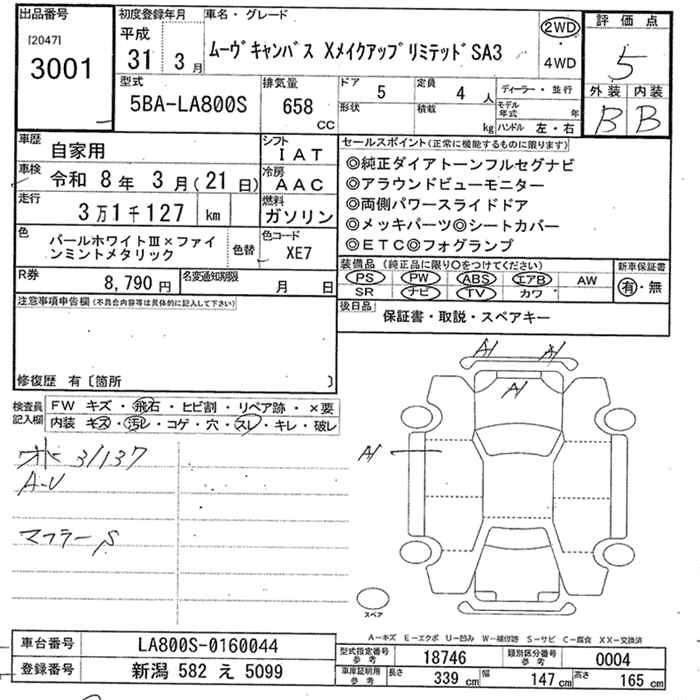 出品番号
[2047]
3001
初度登録年月
平成
31 3月
車名・グレード
ムーヴキャンバス Xメイクアップリミテッド SA3
2WD
・
4WD
評価点
5
外装 内装
B B
型式
5BA-LA800S
排気量
658
CC
ドア
5
形状
定員
4人
積載
kg
ディーラー・並行
モデル年式 年
ハンドル 左・右
車歴
自家用
車検
令和 8年 3月(21日)
走行
3万1千127 km
シフト
IAT
冷房
AAC
燃料
ガソリン
色
パールホワイトⅢ×ファイ
ンミントメタリック
色替
色コード
XE7
R券
8,790円
名変通知期限
月 日
セールスポイント(正常に機能するものに限ります)
◎純正ダイアトーンフルセグナビ
◎アラウンドビューモニター
◎両側パワースライドドア
◎メッキパーツ◎シートカバー
◎ETC◎フォグランプ
装備品 (純正品に限り○をつけてください)
PS PW ABS エアB AW
SR ナビ TV カワ
新車保証書
有・無
後日品
保証書・取説・スペアキー
注意事項申告欄(不具合内容等は具体的に記入して下さい)
修復歴 有〔箇所 〕
検査員
記入欄
FW キズ・飛石・ヒビ割・リペア跡・×要
内装 キズ・汚レ・コゲ・穴・スレ・キレ・破レ
31137
A-U
マフラーS
A1
A1
A1
A1
スペア
A-キズ E-エクボ U-凹み W-補修跡 S-サビ C-腐食 XX-交換済
車台番号
LA800S-0160044
登録番号
新潟 582 え 5099
型式指定番号
参考
18746
類別区分番号
参考
0004
車庫証明用
参考
長さ 339 cm
幅 147 cm
高さ 165 cm